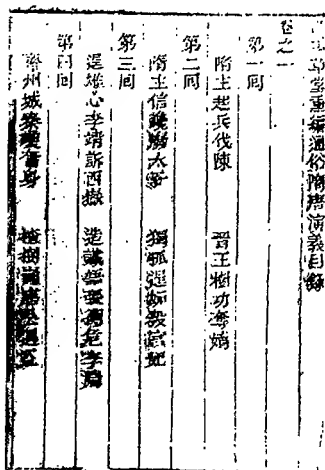 草堂重編通俗隋唐演義目錄
卷之一
第一回
隋主起兵伐陳　晉王樹功奪嫡
第二回
隋主信讒廢太子　獨孤逞妬殺宮妃
第三回
逞雄心李靖訴西嶽　造讖語張衡危李淵
第四回
齊州城豪傑奮身　楂樹崗唐公遇盜